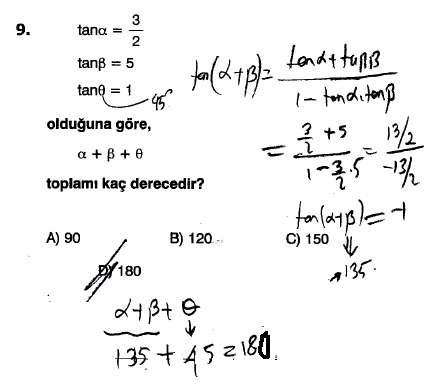 9.
tanα = 3/2
tanβ = 5
tanθ = 1
45°
olduğuna göre,
α + β + θ
toplamı kaç derecedir?
A) 90 B) 120 C) 150
D) 180
tan(α+β) = (tanα + tanβ)/(1 - tanα.tanβ)
= (3/2 + 5)/(1 - 3/2 . 5) = (13/2)/(-13/2)
tan(α+β) = -1
⇓
135.
α + β + θ
↓
135 + 45 = 180.